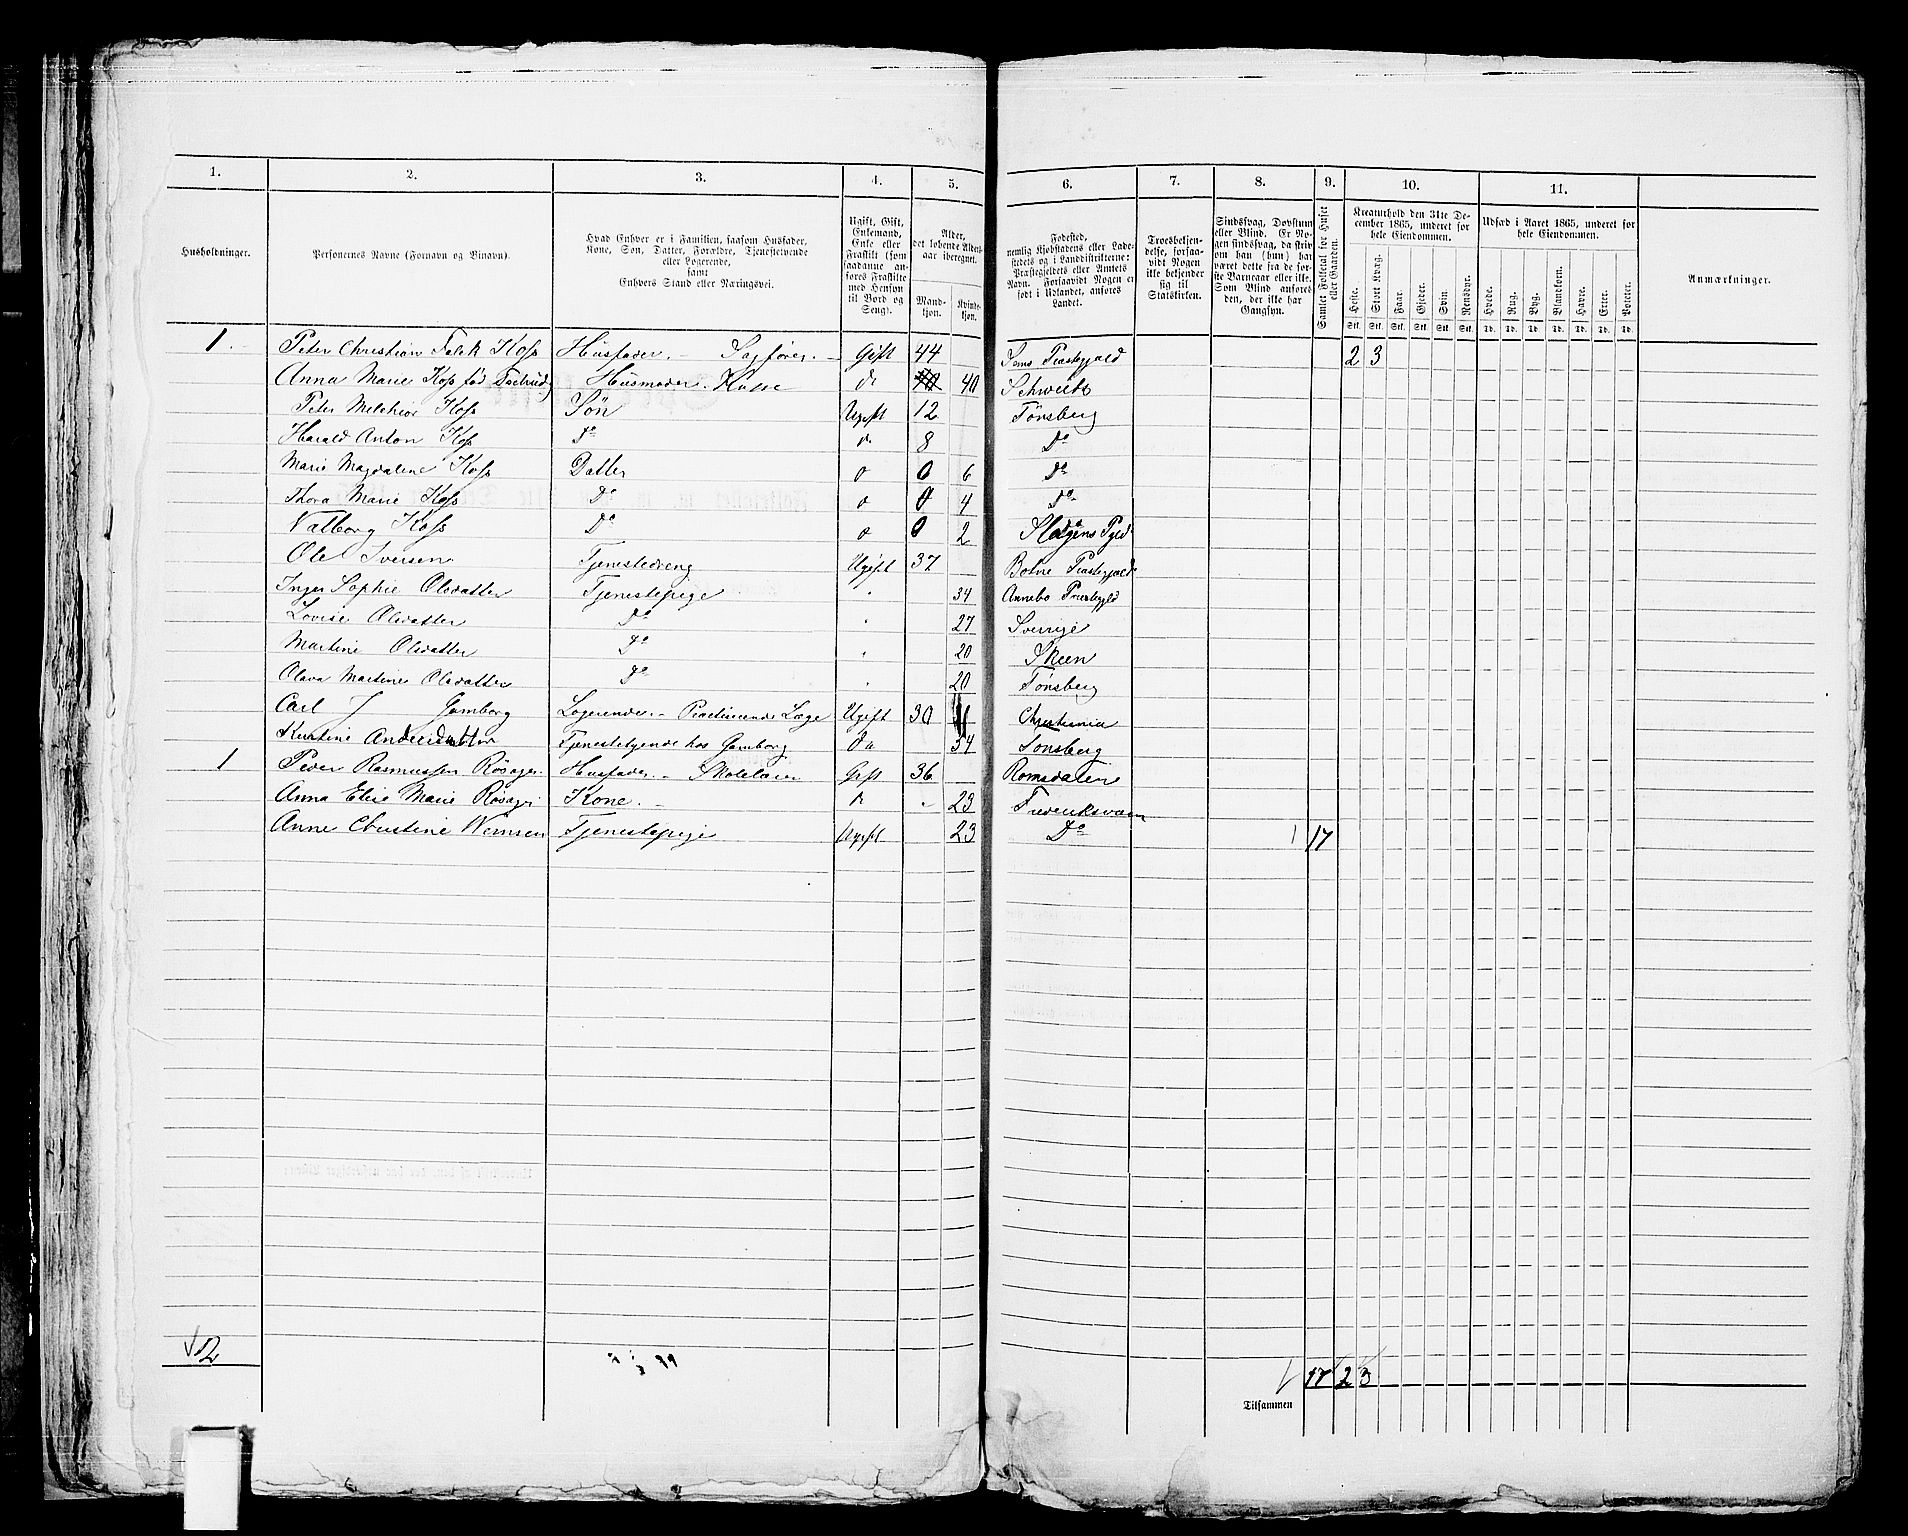 1. 2. 3. 4. 5. 6. 7. 8. 9. 10. 11.
Husholdninger.
Personernes Navne (Fornavn og Binavn).
Hvad Enhver er i Familien, saasom Husfader, Kone, Søn, Datter, Forældre, Tjenestetyende eller Logerende, samt Enhvers Stand eller Næringsvei.
Ugift, Gift, Enkemand, Enke eller Fraskilt (som saadanne anføres Fraskilte med Hensyn til Bord og Seng).
Alder, det løbende Alders-aar iberegnet.
Mand-kjøn. Kvinde-kjøn.
Fødested, nemlig Kjøbstadens eller Ladestedets og i Landdistrikterne: Præstegjeldets eller Amtets Navn. Forsaavidt Nogen er født i Udlandet, anføres Landet.
Troesbekjendelse, forsaavidt Nogen ikke bekjender sig til Statskirken.
Sindssvag, Døvstum eller Blind. Er Nogen sindssvag, da skriv om han (hun) har været dette fra de første Barneaar eller ikke. Som Blind anføres den, der ikke har Gangsyn.
Samlet Folketal for Huset eller Gaarden.
Kreaturhold den 31te December 1865, underet for hele Eiendommen.
Heste. Stort Kvæg. Faar. Gjeder. Svin. Rensdyr.
Stk. Stk. Stk. Stk. Stk. Stk.
Udsæd i Aaret 1865, underet for hele Eiendommen.
Hvede. Rug. Byg. Blandkorn. Havre. Erter. Poteter.
Td. Td. Td. Td. Td. Td. Td.
Anmærkninger.
1. Peter Christian Falck Koss Husfader. - Sagfører. - Gift 44 Præstegjæld 2 3
Anna Marie Koss fød Husmoder. do 40 40 Schwedt
Peter Melchior Koss Søn Ugift 12 Tønsberg
Harald Anton Koss Do do 8 Do
Marie Magdalene Koss Datter o 0 6 Do
Thora Marie Koss Do o 0 4 Do
Valborg Koss Do o 0 2 Slagens Pgld
Ole Iversen Tjenestedreng Ugift 37 Botne Præstegjæld
Inger Sophie Olsdatter Tjenestepige " 34 Annebo Præstegjld
Lovise Olsdatter Do " 27 Sverrige
Martine Olsdatter Do " 20 Skeen
Olava Martine Olsdatter Do " 20 Tønsberg
Carl J Gamborg Logerende. - Practiserende Læge Ugift 30 Christiania
Kirstine Andersdatter Tjenestetyende hos Gamborg Do 34 Tønsberg
1 Peder Rasmussen Røsager Husfader. - Skolelærer Gift 36 Romsdalen
Anna Elise Marie Røsager Kone. - do " 23 Frederiksværn
Anne Christine Tjenestepige Ugift 23 Do 1 17
√2
√ 17 2 3
Tilsammen